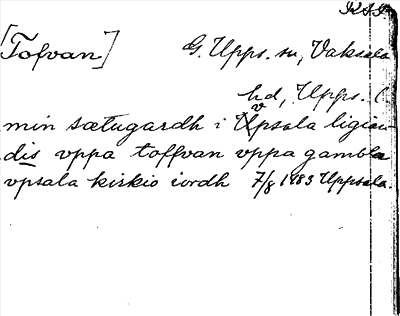 [Tofvan] G. Upps. sn, Vaksala
hd, Upps. l.
min sætugardh i Vpsala ligian-
dis vppa toffvan vppa gambla
vpsala kirkio iordh 7/8 1483 Uppsala.